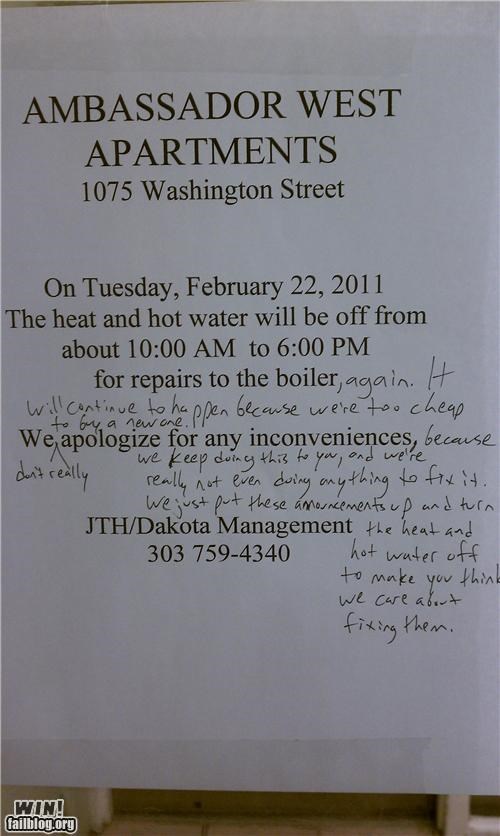 AMBASSADOR WEST
APARTMENTS
1075 Washington Street
On Tuesday, February 22, 2011
The heat and hot water will be off from
about 10:00 AM to 6:00 PM
for repairs to the boiler, again. It
will continue to happen because we're too cheap
to buy a new one.
We apologize for any inconveniences, because
don't really
we keep doing this to you, and we're
really not even doing anything to fix it.
We just put these announcements up and turn
JTH/Dakota Management the heat and
303 759-4340 hot water off
to make you think
we care about
fixing them.
WIN!
failblog.org